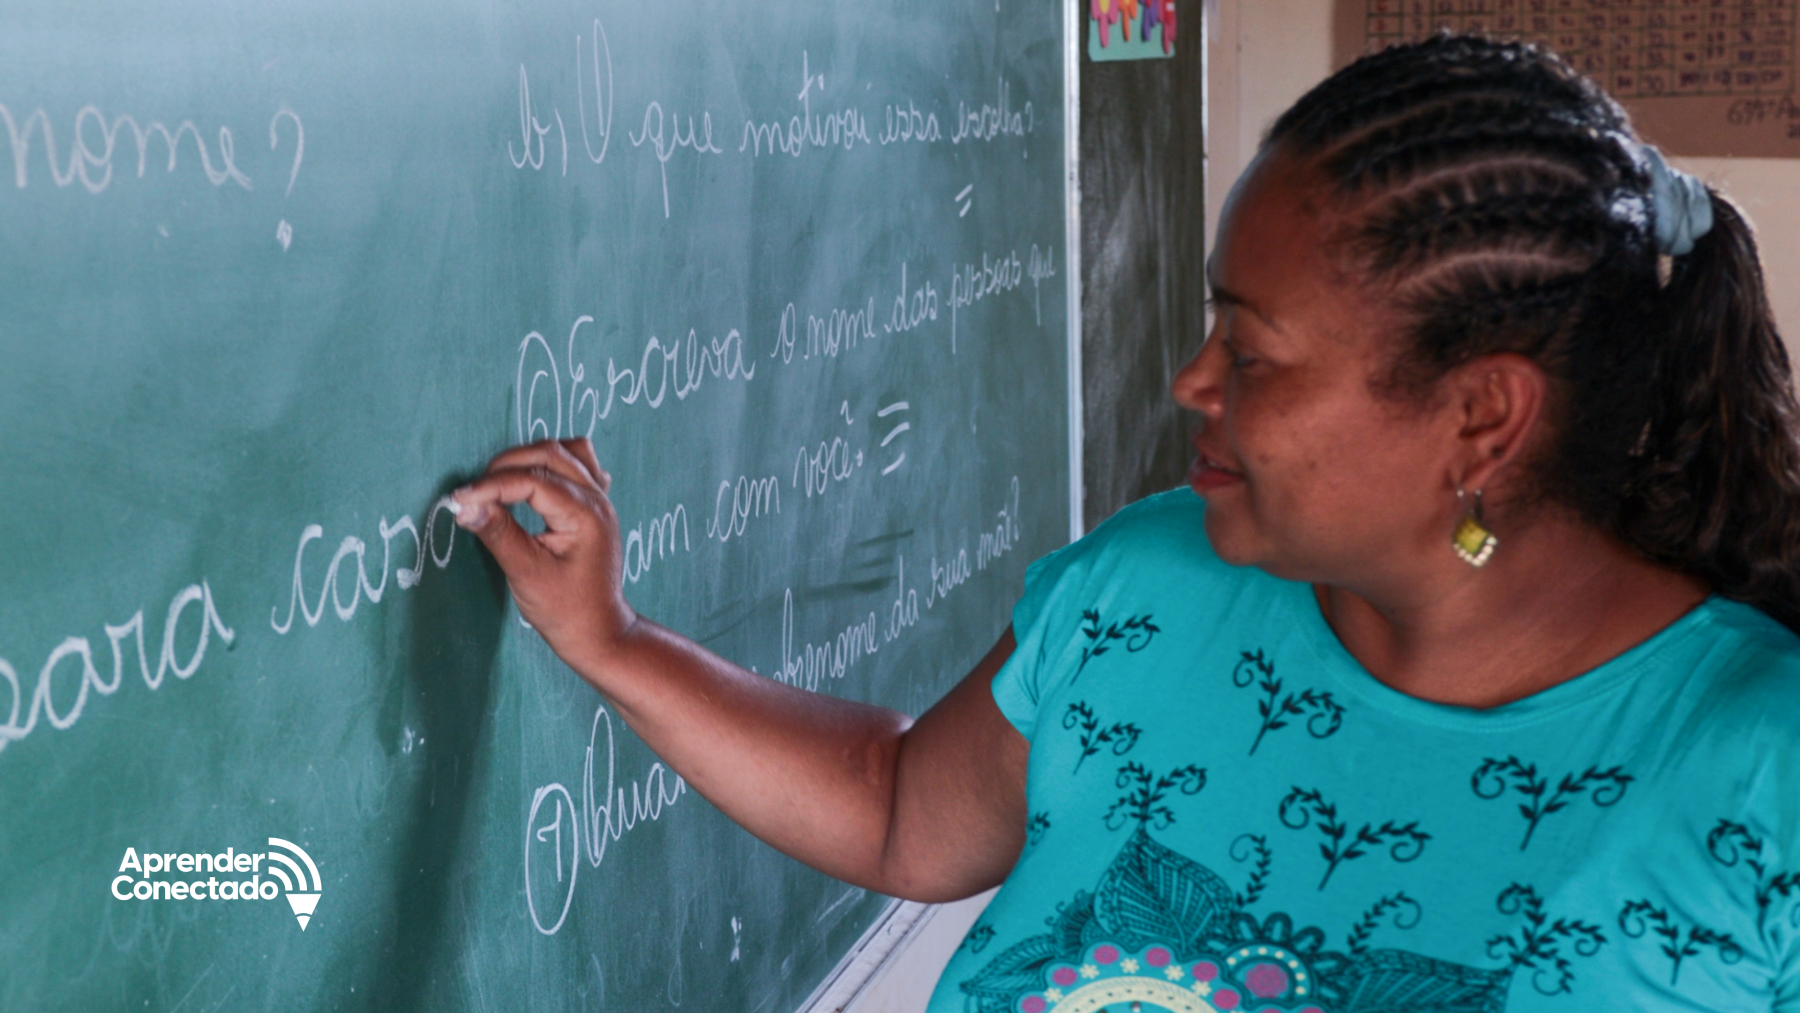 nome?
para casa
b) O que motivou essa escolha?
=
6) Escreva o nome das pessoas que
am com você.
obrenome da sua mãe?
7) Qua
Aprender
Conectado